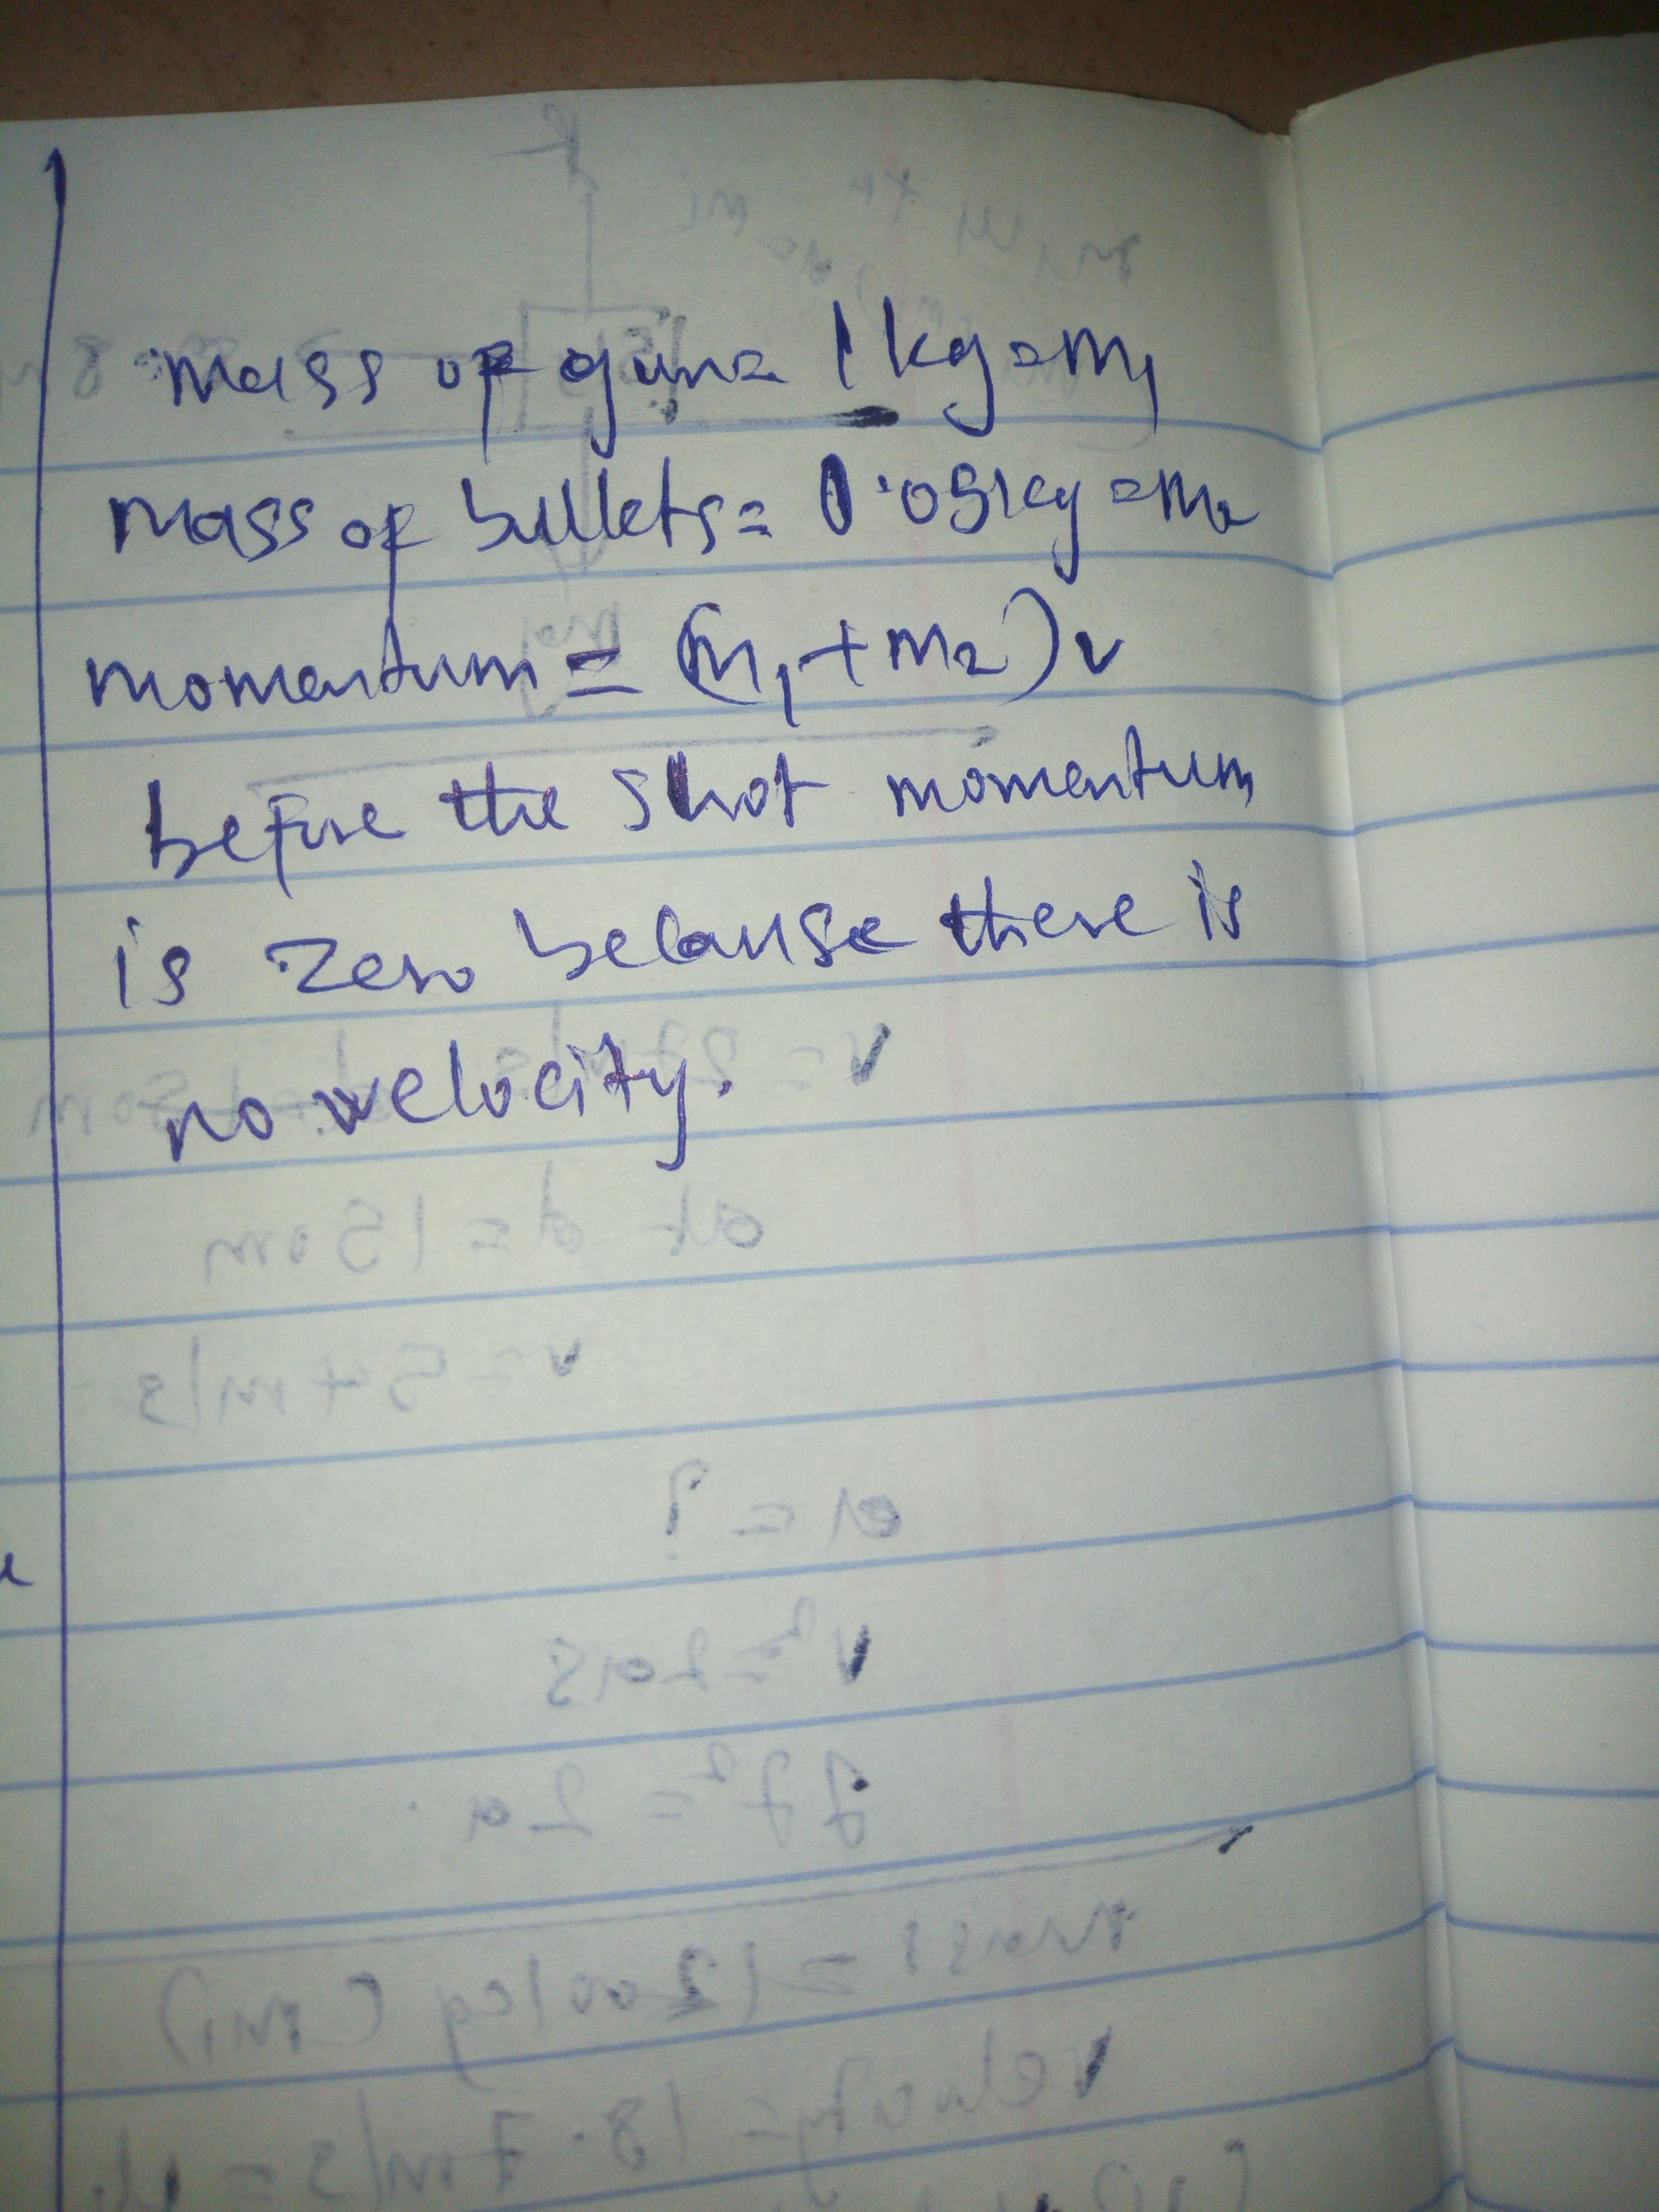 mass of gun = 1kg = m1
mass of bullets = 0.05kg = m2
momentum = (m1 + m2) v
before the shot momentum
is zero because there is
no velocity.